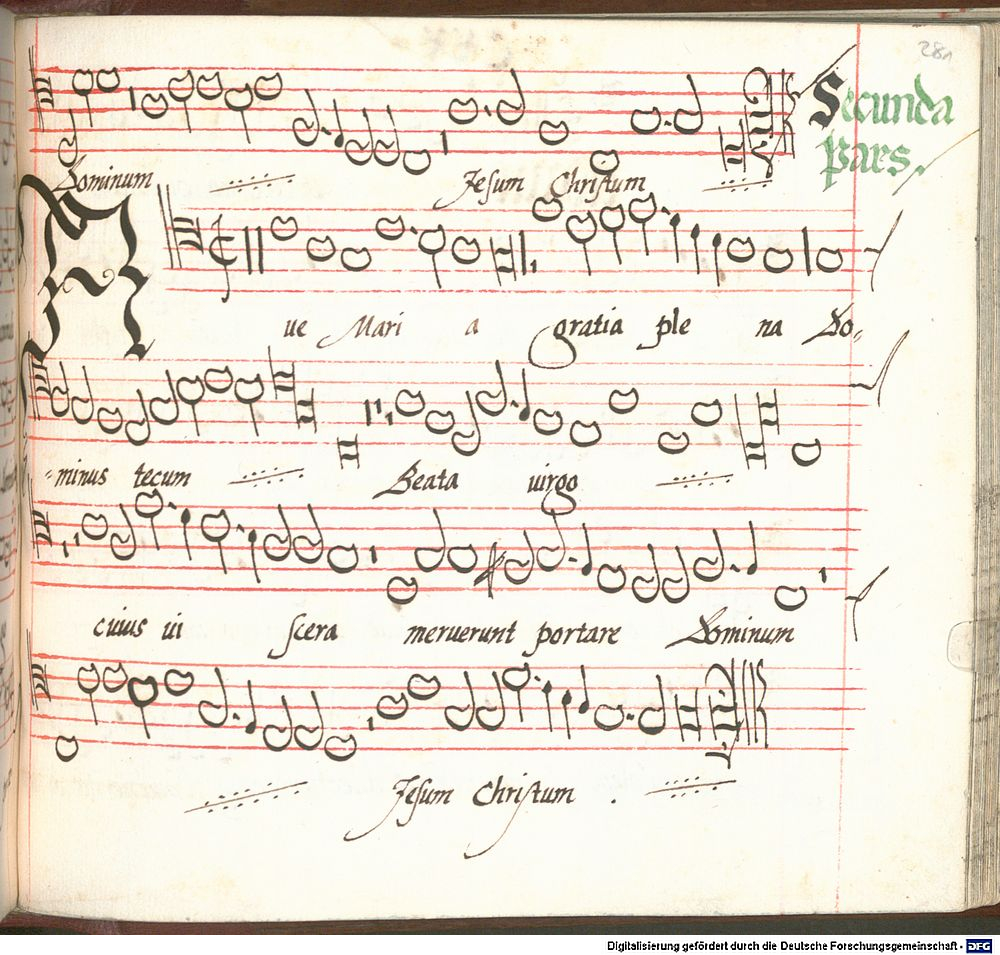 281
Secunda
pars.
Dominum Jesum Christum
Aue Mari a gratia ple na Do-
-minus tecum Beata uirgo
cuius ui scera meruerunt portare Dominum
Jesum Christum .
Digitalisierung gefördert durch die Deutsche Forschungsgemeinschaft - DFG